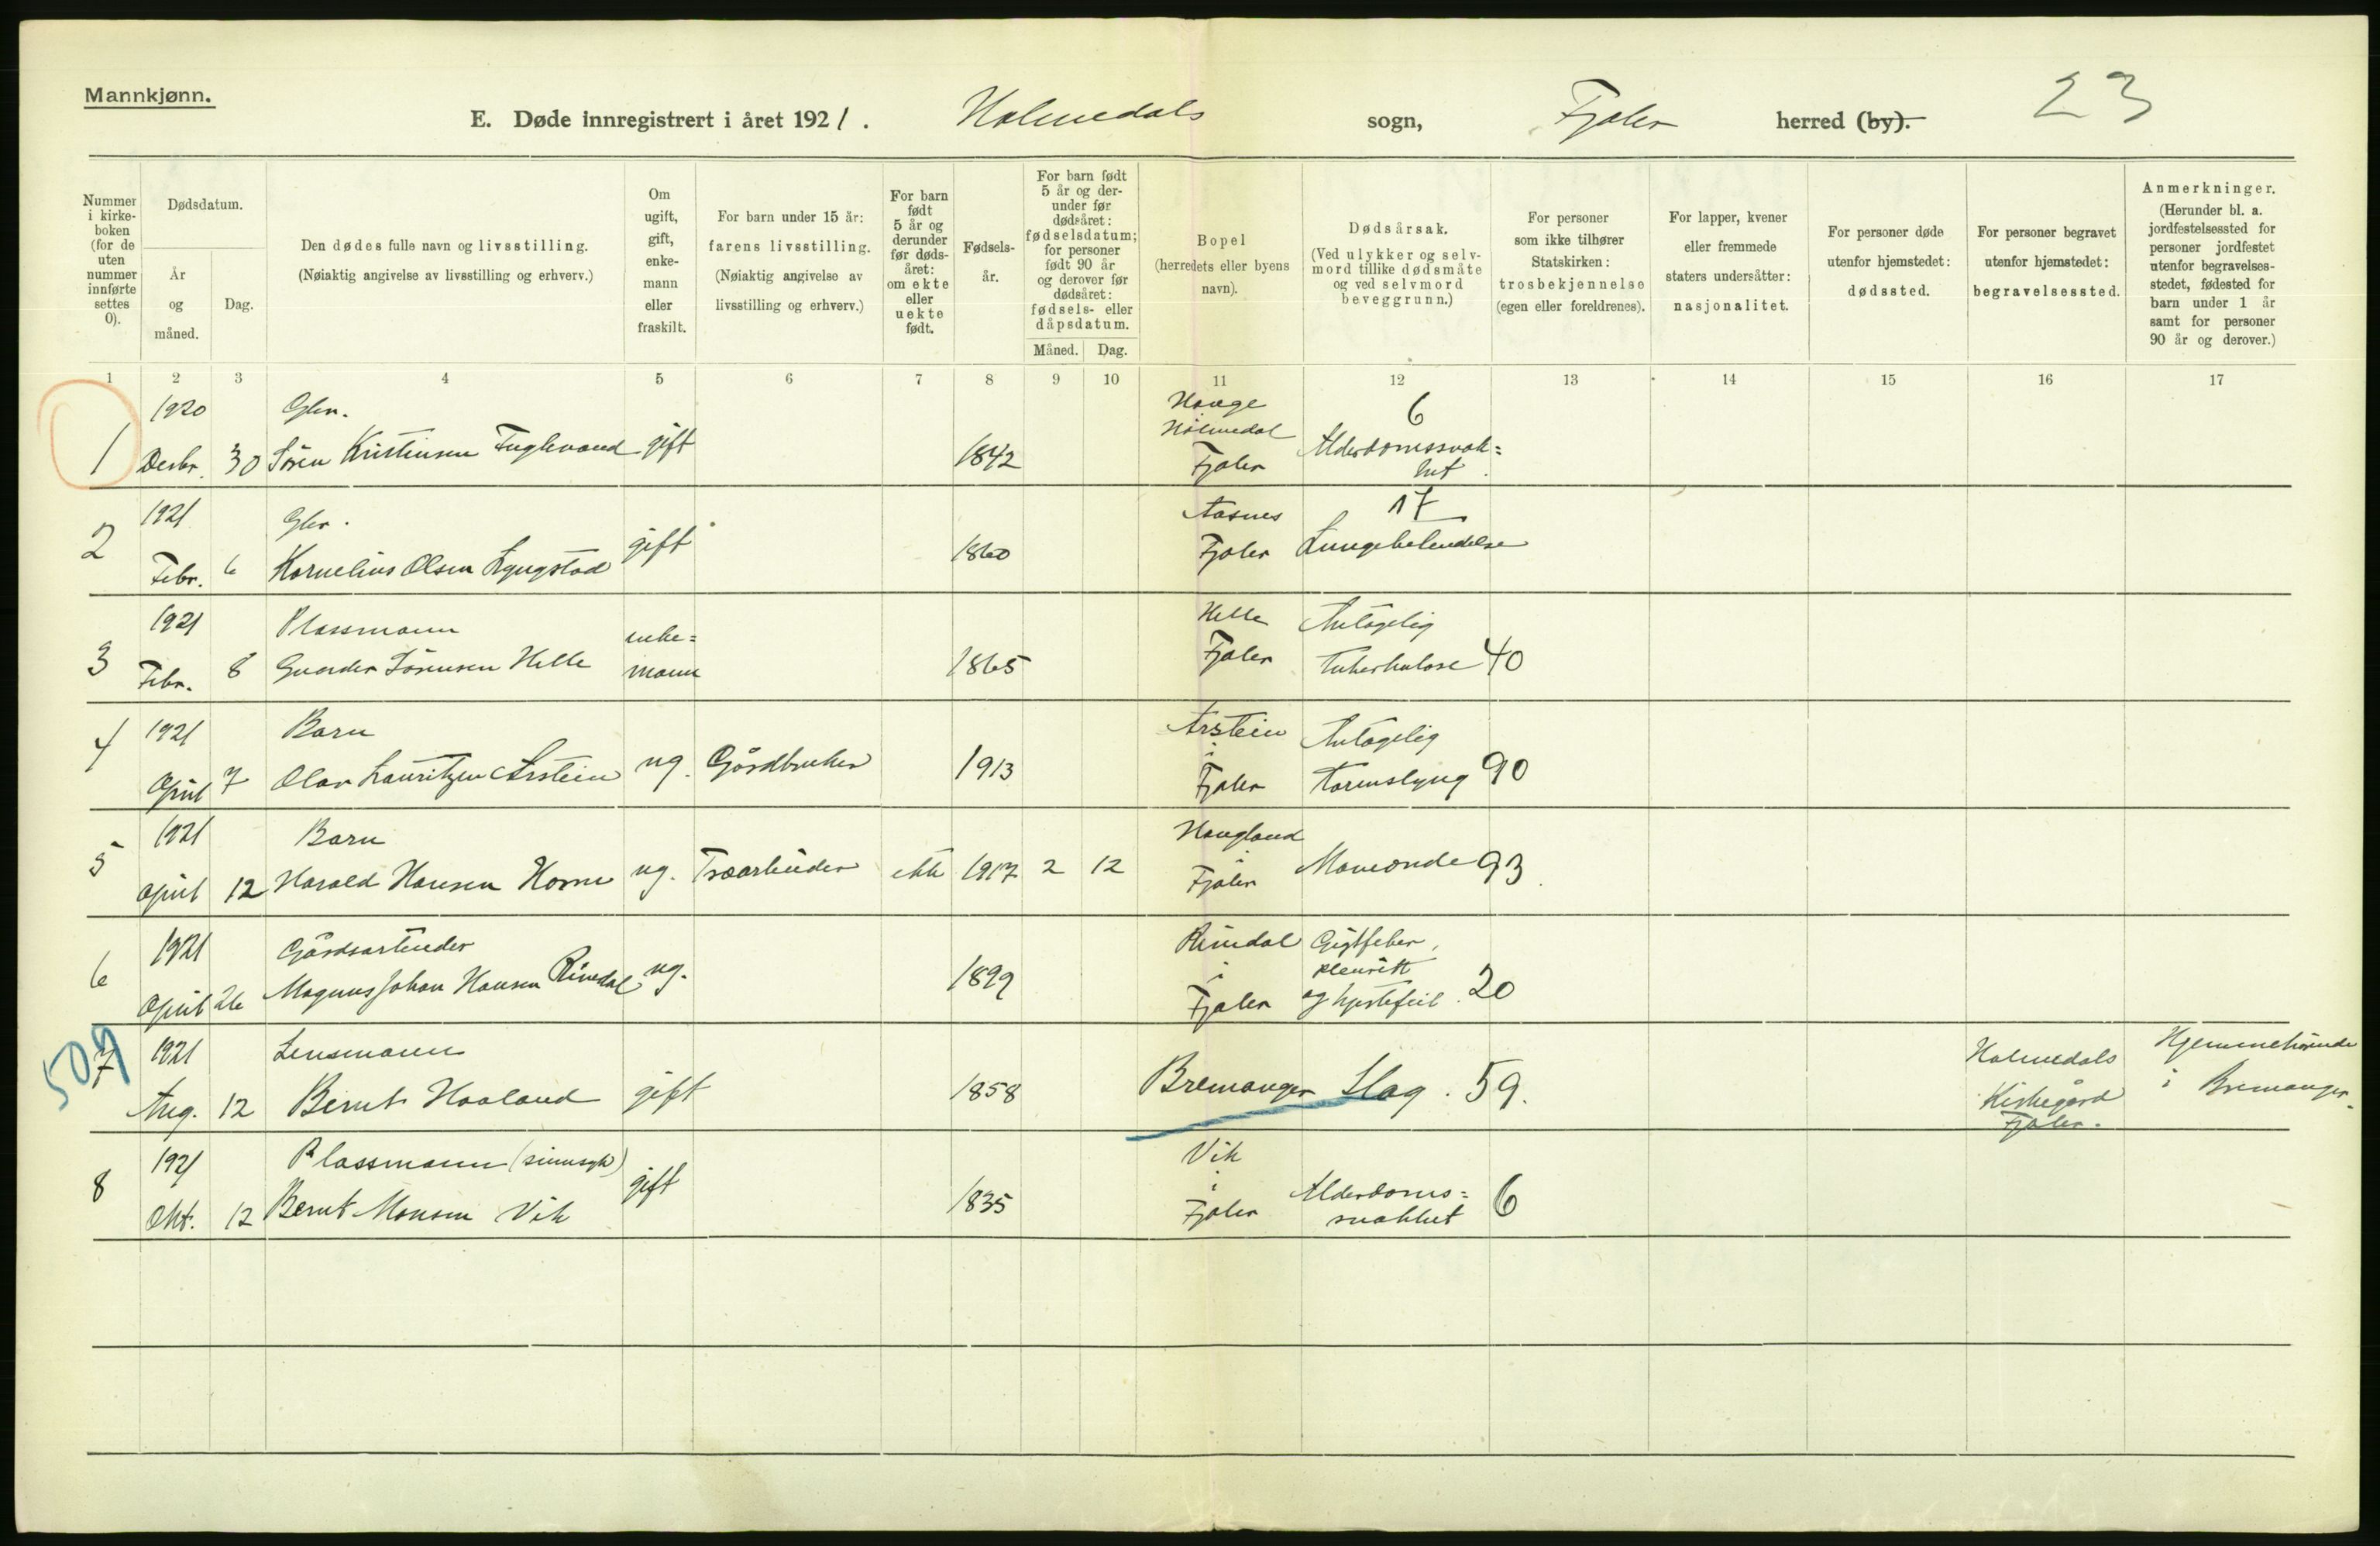 Mannkjønn.
E. Døde innregistrert i året 1921. Holmedals sogn, Fjaler herred (by). 23
Nummer i kirke-boken (for de uten nummer innførte settes 0).
Dødsdatum.
År og måned.
Dag.
Den dødes fulle navn og livsstilling.
(Nøiaktig angivelse av livsstilling og erhverv.)
Om ugift, gift, enke-mann eller fraskilt.
For barn under 15 år: farens livsstilling.
(Nøiaktig angivelse av livsstilling og erhverv.)
For barn født 5 år og derunder før døds-året: om ekte eller uekte født.
Fødsels-år.
For barn født 5 år og der-under før dødsåret: fødselsdatum; for personer født 90 år og derover før dødsåret: fødsels- eller dåpsdatum.
Måned. Dag.
Bopel (herredets eller byens navn).
Dødsårsak.
(Ved ulykker og selv-mord tillike dødsmåte og ved selvmord beveggrunn.)
For personer som ikke tilhører Statskirken: trosbekjennelse (egen eller foreldrenes).
For lapper, kvener eller fremmede staters undersåtter: nasjonalitet.
For personer døde utenfor hjemstedet: dødssted.
For personer begravet utenfor hjemstedet: begravelsessted.
Anmerkninger.
(Herunder bl. a. jordfestelsessted for personer jordfestet utenfor begravelses-stedet, fødested for barn under 1 år samt for personer 90 år og derover.)
1 2 3 4 5 6 7 8 9 10 11 12 13 14 15 16 17
1920 Gbr. Hauge 6
Holmedal
1 Desbr. 30 Søren Kristensen Fuglevand gift 1842 Fjaler Alderdomssvak=
het.
1921 Gbr. Aasnes 17
2 Febr. 6 Kornelius Olsen Lyngstad gift 1860 Fjaler Lungebetendelse
1921 Plassmann enke= Helle Antagelig
3 Febr. 8 Gunder Sørensen Helle mann 1865 Fjaler tuberkulose 40
4 1921 Barn Arstein Antagelig
i
April 7 Olav Lauritzen Arstein ug. Gårdbruker 1913 Fjaler tarmslyng 90
1921 Barn Haugland
i
5 April 12 Harald Hansen Horne ug. Træarbeider ekte 1917 2 12 Fjaler Maveonde 93.
1921 Gårdsarbeider Rimdal Gigtfeber,
i pleuritt
6 April 26 Magnus Johan Hansen Rimdal ug. 1899 Fjaler og hjertefeil. 20
509
7 1921 Lensmann Holmedals Hjemmehørende
Aug. 12 Bernt Haaland gift 1858 Bremanger Slag. 59. Kirkegård i Bremanger.
Fjaler.
1921 Plassmann (sinnsyk) Vik
i
8 Okt. 12 Bernt Monsen Vik gift 1835 Fjaler Alderdoms=
svakhet 6